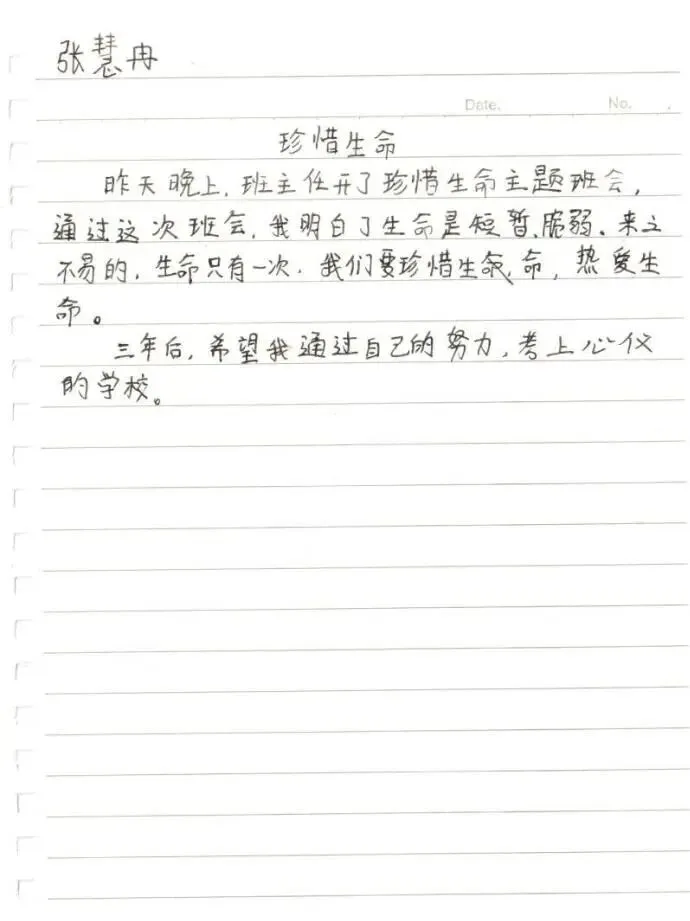 张慧冉
Date. No. .
珍惜生命
昨天晚上,班主任开了珍惜生命主题班会,
通过这次班会,我明白了生命是短暂、脆弱、来之
不易的,生命只有一次,我们要珍惜生命,热爱生
命。
三年后,希望我通过自己的努力,考上心仪
的学校。